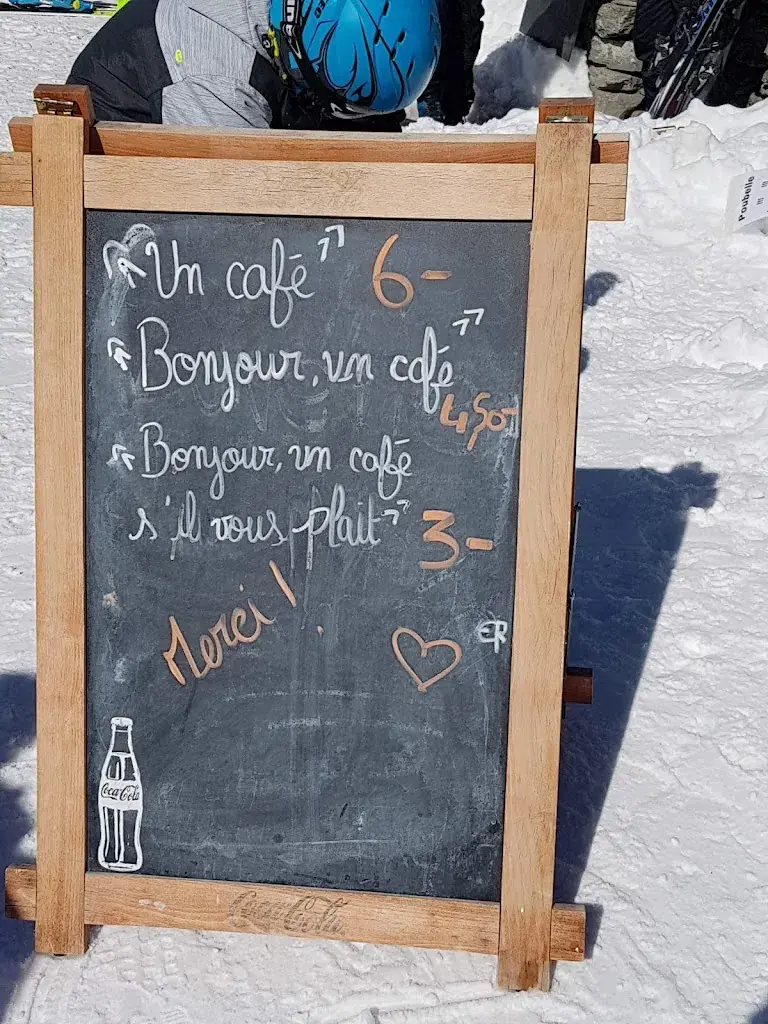 « Un café » 6-
« Bonjour, un café »
4,50-
« Bonjour, un café
s'il vous plait » 3-
Merci !
Coca-Cola
Coca-Cola
Poubelle